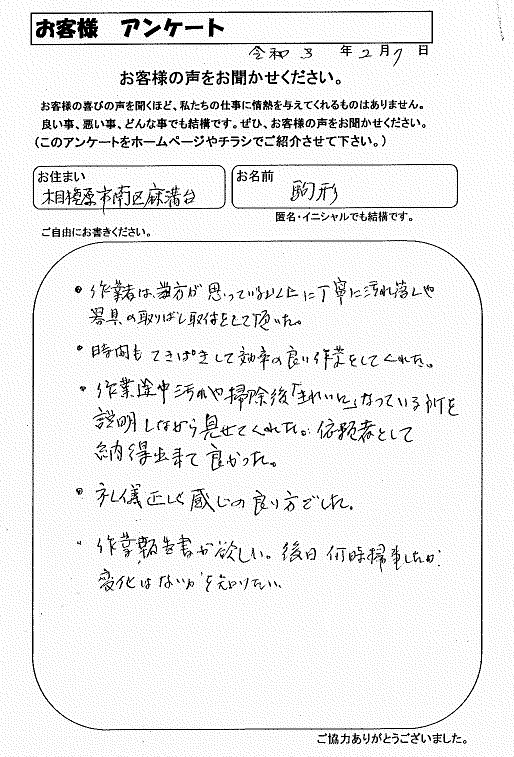 お客様 アンケート
令和 3 年 2 月 7 日
お客様の声をお聞かせください。
お客様の喜びの声を聞くほど、私たちの仕事に情熱を与えてくれるものはありません。
良い事、悪い事、どんな事でも結構です。ぜひ、お客様の声をお聞かせください。
(このアンケートをホームページやチラシでご紹介させて下さい。)
お住まい
相模原市南区麻溝台
お名前
駒形
匿名・イニシャルでも結構です。
ご自由にお書きください。
・作業者は、当方が思っている以上に丁寧に汚れ落しや
器具の取りばし取付をして頂いた。
・時間もてきぱきして効率の良い作業をしてくれた。
・作業途中汚れや掃除後「きれいに」なっている所を
説明しながら見せてくれた。依頼者として
納得出来て良かった。
・礼儀正しく感じの良い方でした。
・作業報告書が欲しい。後日何時掃事したか
変化はないかを知りたい
ご協力ありがとうございました。